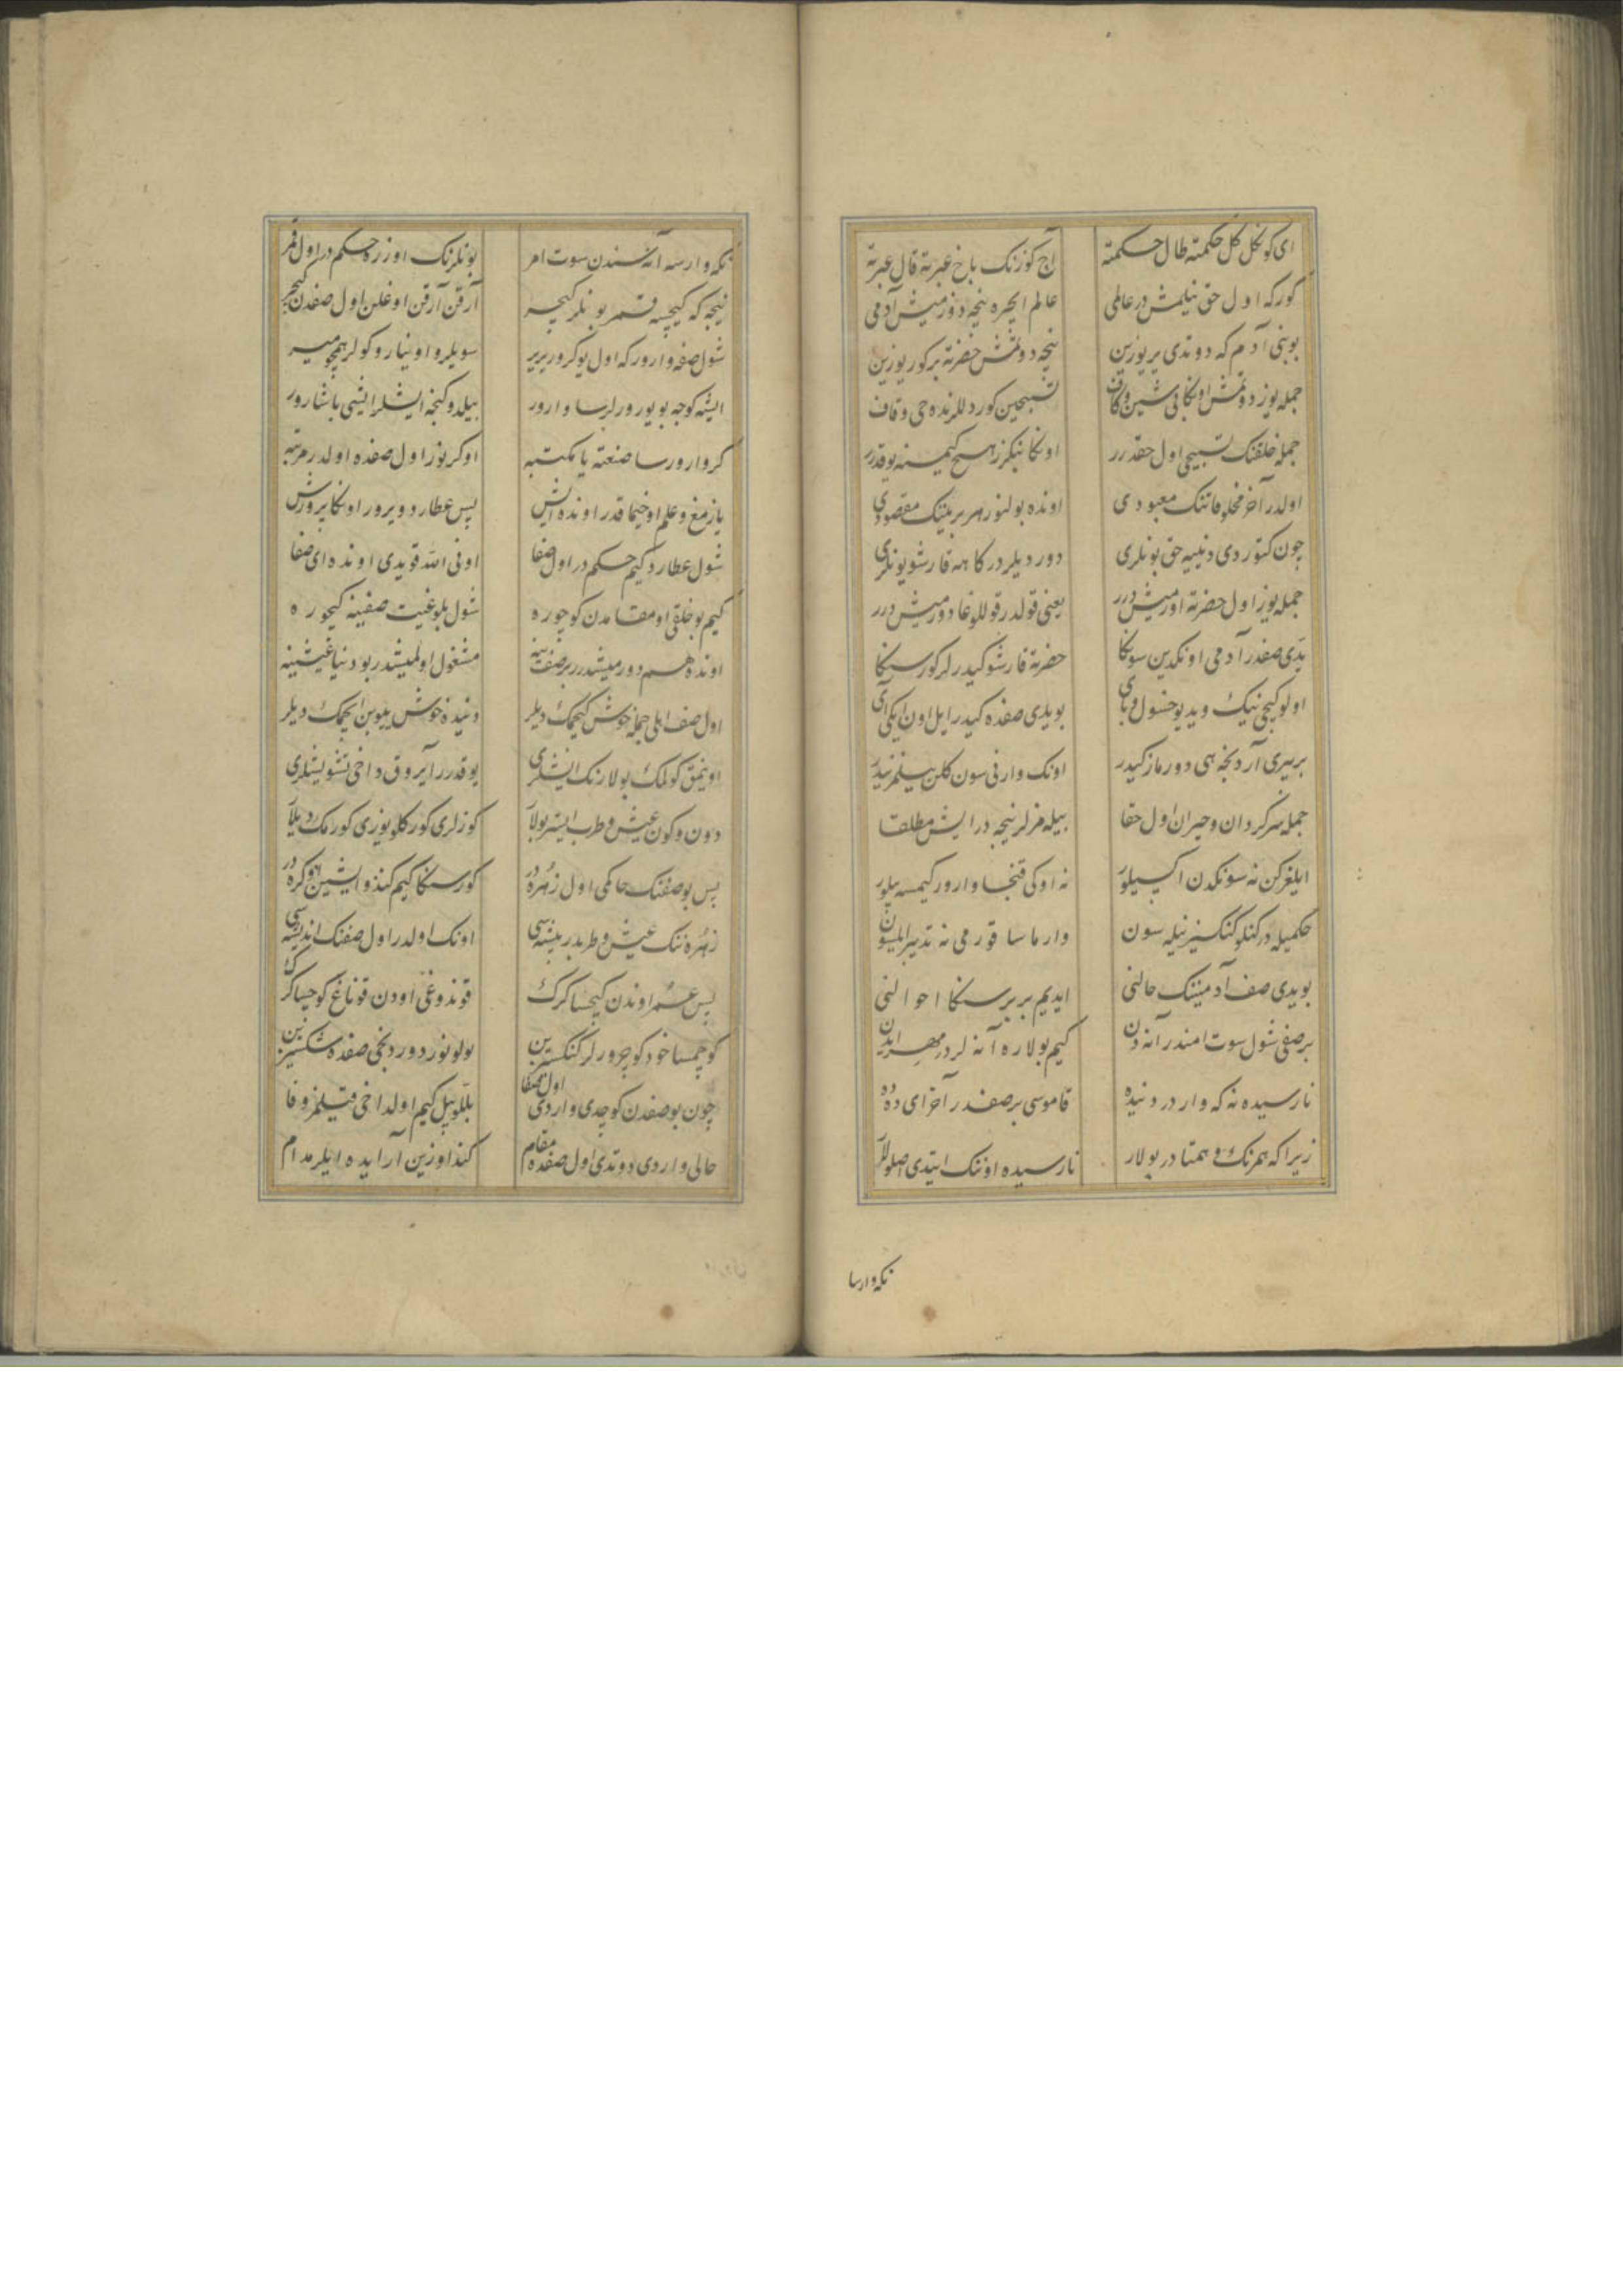 ای کوکل کل حکمته طال حکمته آج کوزنک باخ عبرته قال عبرته
کورکه اول حق نیلمش در عالمی عالم ایچره نیجه دوزمیش آدمی
بو بنی آدم که دوتدی یر یوزین نیجه دوتمش حضرته بر کور یوزین
جمله یوز دوتمش اونکا بی شین وکاف تسبیحین کور دللرنده حی وقاف
جمله خلقنک تسبیحی اول حقدرر اونکا بنکزر هیچ کیمسنه یوقدرر
اولدر آخر مخلوقاتنک معبودی اونده بولنور هر برینک مقصودی
چون کتوردی دنییه حق بونلری دوردیلر درکاهه قارشو یونلری
جمله یوز اول حضرته اورمیش درر یعنی قولدر قوللوغا دورمیش درر
یدی صفدر آدمی اونکدین سونکا حضرته قارشو کیدرلر کورسنکا
اولو کیجی نیک وبد یوخسول وبای بو یدی صفده کیدر ایل اون ایکی آی
بربیری آردنجه هی دورماز کیدر اونک وارنی سون کلن بیلمز نیدر
جمله سرکردان وحیران اول حقا بیله مزلر نیجه در ایش مطلقا
ایلغرکن نه سونکدن اکسیلور نه اوکی قنجا وارور کیمسه بیلور
حکمیله در کنلو کنکسز نیله سون وارماسا قورمی نه تدبیر ایلسون
بو یدی صف آدمینک حالنی ایدیم بربر سنکا احوالنی
بر صفی شول سوت امندر آنه دن کیم بولاره آنه لردر مهر ایدن
نارسیده نه که واردر دونیده قاموسی بر صفدر آخر ای دده
زیرا که همرنک وهمتادر بولار نارسیده اوننک ایتدی اصلولر
نکه وارسا
نکه وارسه آنه سندن سوت امر بونلرنک اوزره حکم در اول قمر
نیجه که کیچسه قمر بونلر کیچر آرقن آرقن اوغلن اول صفدن کیچر
شول صفه وارور که اول یوکرور یریر سویلر و اوینار و کولر همچو میر
ایشه کوجه بویورورلرسا وارور بیلدوکنجه ایشلر ایشی باشارور
کر وارورسا صنعته یا مکتبه اوکرنور اول صفده اولدر مرتبه
یازمغ وعلم اوخیماقدر اونده ایش پس عطارد ویرور اونکا پرورش
شول عطارد کیم حکم در اول صفا اونی الله قویدی اونده ای صفا
کیم بو خلقی او مقامدن کوچوره شول بلوغیت صفینه کیچوره
اونده هم دورمیشدرر بر صف ینه مشغول اولمیشدر بو دنیا عیشینه
اول صف اهلی جمله خوش کیچمک دیلر دنیده خوش یییوبن ایچمک دیلر
اوینمق کولمک بولارنک ایشلری یوقدرر آیروق داخی تشویشلری
دون وکون عیش وطرب ایستر بولار کوزلری کورکلو یوزی کورمک دیلار
پس بو صفنک حاکمی اول زهره در کورسنکا کیم کندو ایشین
زهره ننک عیش وطربدر پیشه سی اونک اولدر اول صفنک اندیشه سی
پس عمر اوندن کیچسا کرک قوندوغی اودن قوناغ کوچسا کرک
کوچمسا خود کوچرورلر کنکسزین بولونور دوردنجی صفده شکسزین
چون بو صفدن کوچدی واردی اول صفا بللو بیل کیم اول داخی قیلمز وفا
حالی واردی دوتدی اول صفده مقام کندو اوزین آرایده ایلر مدام